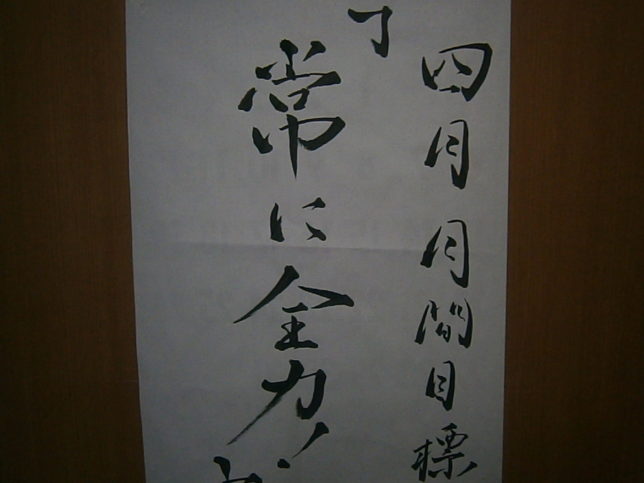 四月月間目標
常に全力!